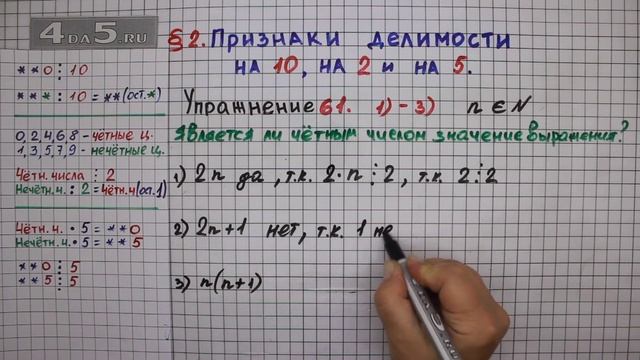 4DA5.RU
§2. Признаки делимости
на 10, на 2 и на 5.
**0 ⋮ 10
*** : 10 = **(ост.*)
0, 2, 4, 6, 8 - чётные ц.
1, 3, 5, 7, 9 - нечётные ц.
Чётн. числа ⋮ 2
Нечётн.ч. : 2 = чётн.ч(ост.1)
Чётн.ч. · 5 = **0
Нечётн.ч. · 5 = **5
**0 ⋮ 5
**5 ⋮ 5
Упражнение 61. 1) - 3) n ∈ N
Является ли чётным числом значение выражения?
1) 2n да, т.к. 2·n ⋮ 2, т.к. 2 ⋮ 2
2) 2n+1 нет, т.к. 1 не
3) n(n+1)